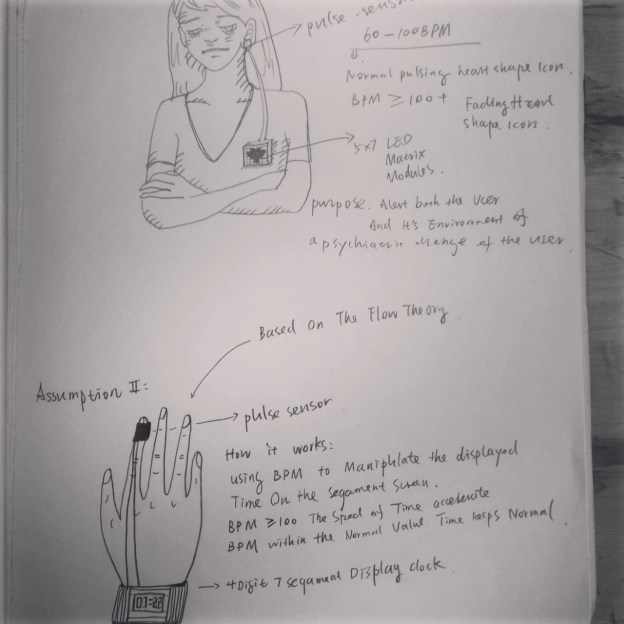 pulse-sensor
60-100BPM
Normal pulsing heart shape icon.
BPM ≥ 100 + Fading Heart
shape icon.
5x7 LED
Matrix
Modules.
purpose. Alert both the User
And It's Environment of
a psychiatric change of the user.
Based On The Flow Theory.
Assumption II:
pulse sensor
How it works:
using BPM to Maniphlate the displayed
Time On the segament Screen.
BPM ≥100 The Speed of Time accelerate
BPM within the Normal Value Time lasps Normal.
4 Digit 7 segament Display clock.